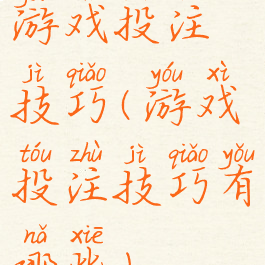 游戏投注
jì qiǎo yóu xì
技巧(游戏
tóu zhù jì qiǎo yǒu
投注技巧有
nǎ xiē
哪些)